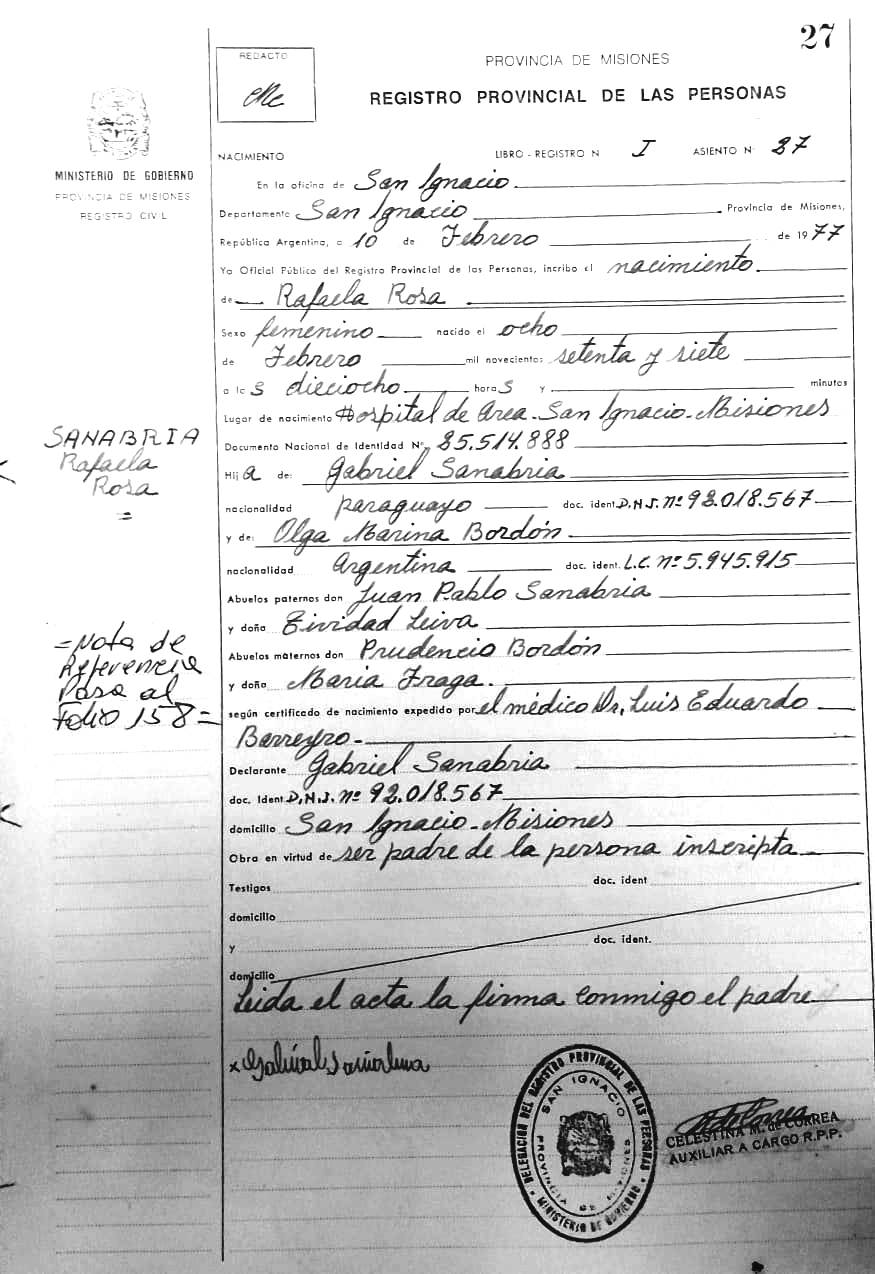 27
REDACTO
PROVINCIA DE MISIONES
REGISTRO PROVINCIAL DE LAS PERSONAS
MINISTERIO DE GOBIERNO
PROVINCIA DE MISIONES
REGISTRO CIVIL
NACIMIENTO LIBRO - REGISTRO N I ASIENTO N 27
En la oficina de San Ignacio
Departamento San Ignacio Provincia de Misiones,
República Argentina, a 10 de Febrero de 1977
Yo Oficial Público del Registro Provincial de las Personas, incribo el nacimiento
de Rafaela Rosa
Sexo femenino nacido el ocho
de Febrero mil novecientos setenta y siete
a las dieciocho horas y minutos
Lugar de nacimiento Hospital de Area - San Ignacio - Misiones
Documento Nacional de Identidad Nº 25.514.888
SANABRIA
Rafaela
Rosa
=
Hija de: Gabriel Sanabria
nacionalidad paraguayo doc. ident. D.N.I. nº 92.018.567
y de: Olga Marina Bordón
nacionalidad Argentina doc. ident. L.C. nº 5.945.915
Abuelos paternos don Juan Pablo Sanabria
y doña Tividad Leiva
Abuelos maternos don Prudencio Bordón
y doña Maria Fraga.
=Nota de
Referencia
Pasa al
Folio 158=
según certificado de nacimiento expedido por el médico Dr. Luis Eduardo
Barreyro
Declarante Gabriel Sanabria
doc. ident. D.N.I. nº 92.018.567
domicilio San Ignacio - Misiones
Obra en virtud de ser padre de la persona inscripta
Testigos doc. ident
domicilio
y doc. ident.
domicilio
Leida el acta la firma conmigo el padre
x Gabriel Sanabria
DELEGACION DEL REGISTRO PROVINCIAL DE LAS PERSONAS
SAN IGNACIO
PROVINCIA DE MISIONES
MINISTERIO DE GOBIERNO
CELESTINA M. de CORREA
AUXILIAR A CARGO R.P.P.